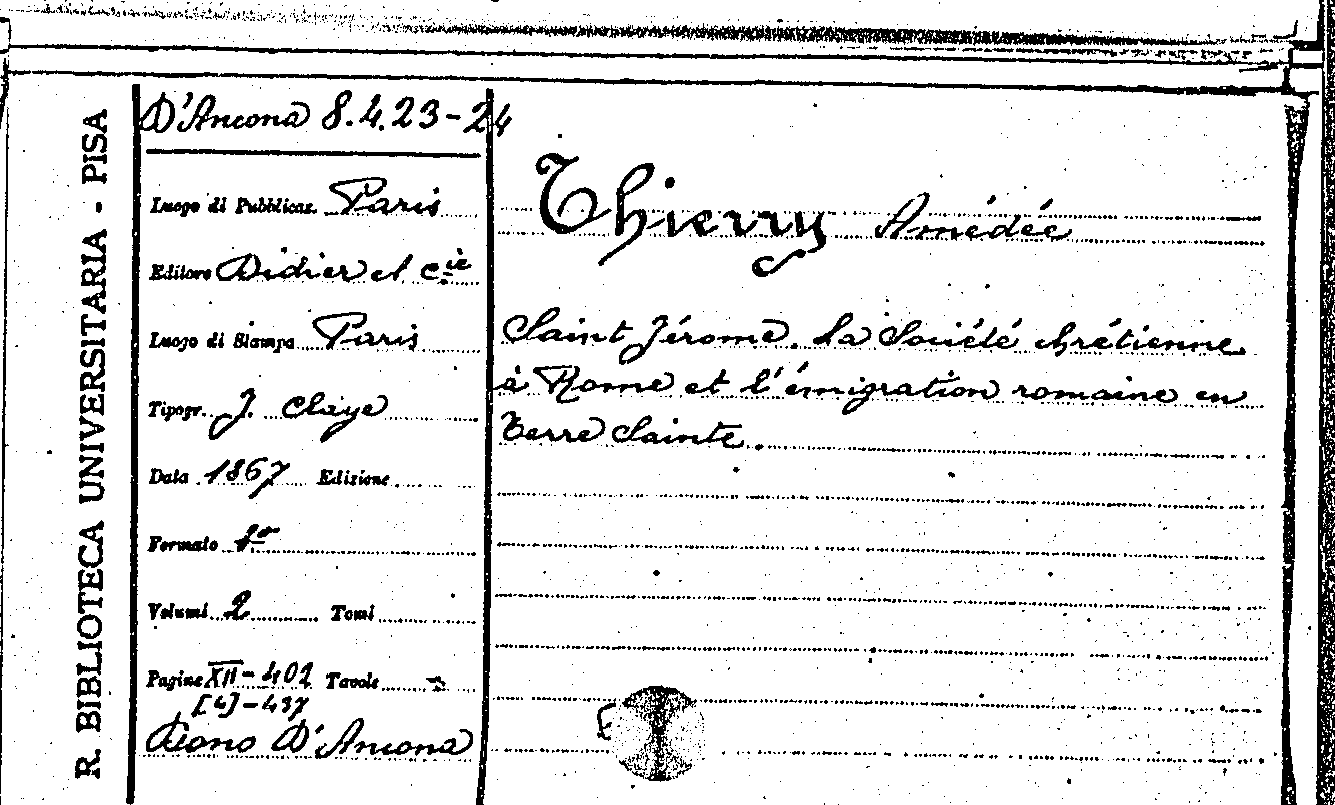 R. BIBLIOTECA UNIVERSITARIA - PISA
D'Ancona 8.4.23-24
Luogo di Pubblicaz. Paris
Editore Didier et Cie
Luogo di Stampa Paris
Tipogr. J. Claye
Data 1867 Edizione
Formato
Volumi 2 Tomi
Pagine XII-402 Tavole
[4]-437
Dono D'Ancona
Thierry Amédée
Saint Jérome. La Société chrétienne
à Rome et l'émigration romaine en
Terre Sainte.